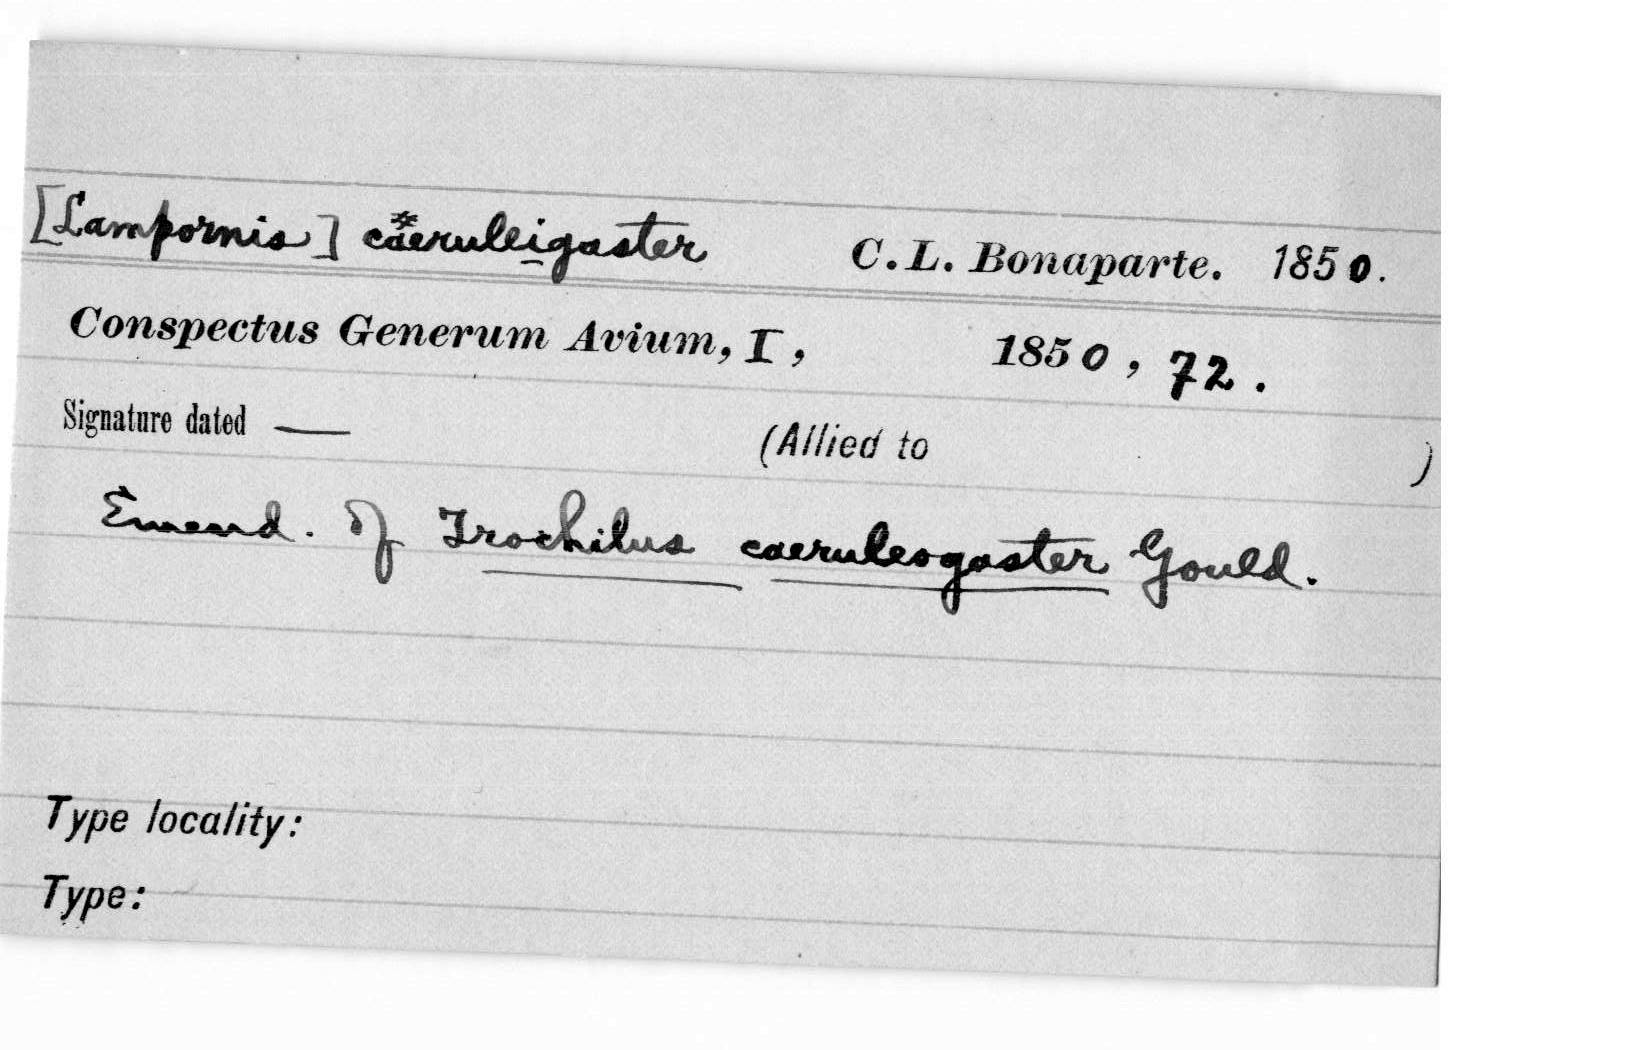 [Lampornis] caeruleigaster C. L. Bonaparte. 1850.
Conspectus Generum Avium, I, 1850, 72.
Signature dated — (Allied to )
Emend. of Trochilus caeruleogaster Gould.
Type locality:
Type: